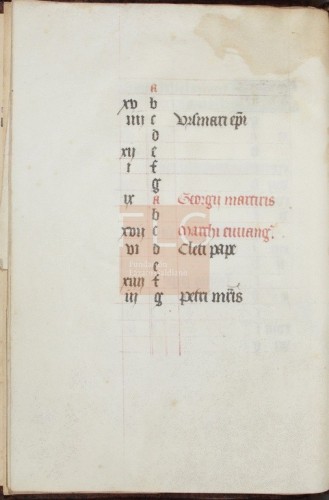 a
xv b
iiii c Vrsmari ep̄i
d
xii e
i f
g
ix a Georgij martiris
b
xvii c marchi euuang
vi d Cleti pape
e
xiiii f
iij g petri mr̄is